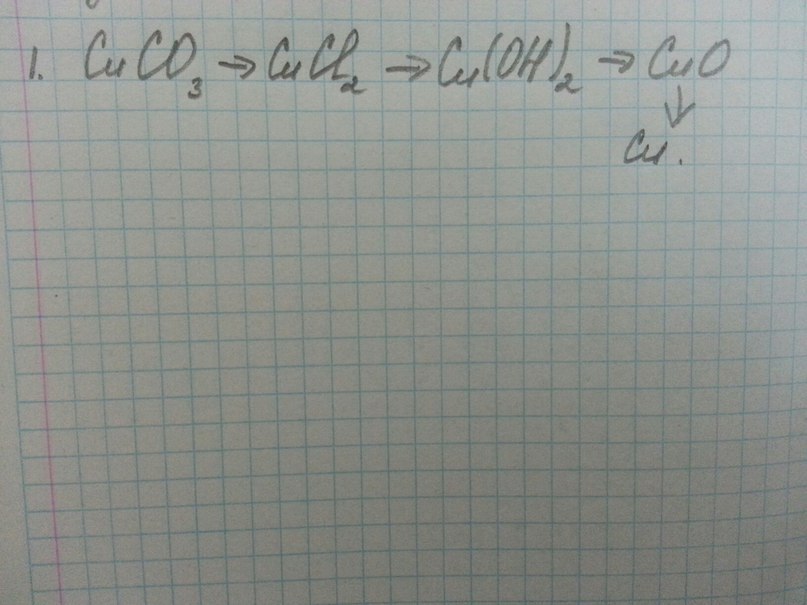 1. CuCO₃ → CuCl₂ → Cu(OH)₂ → CuO
↓
Cu.